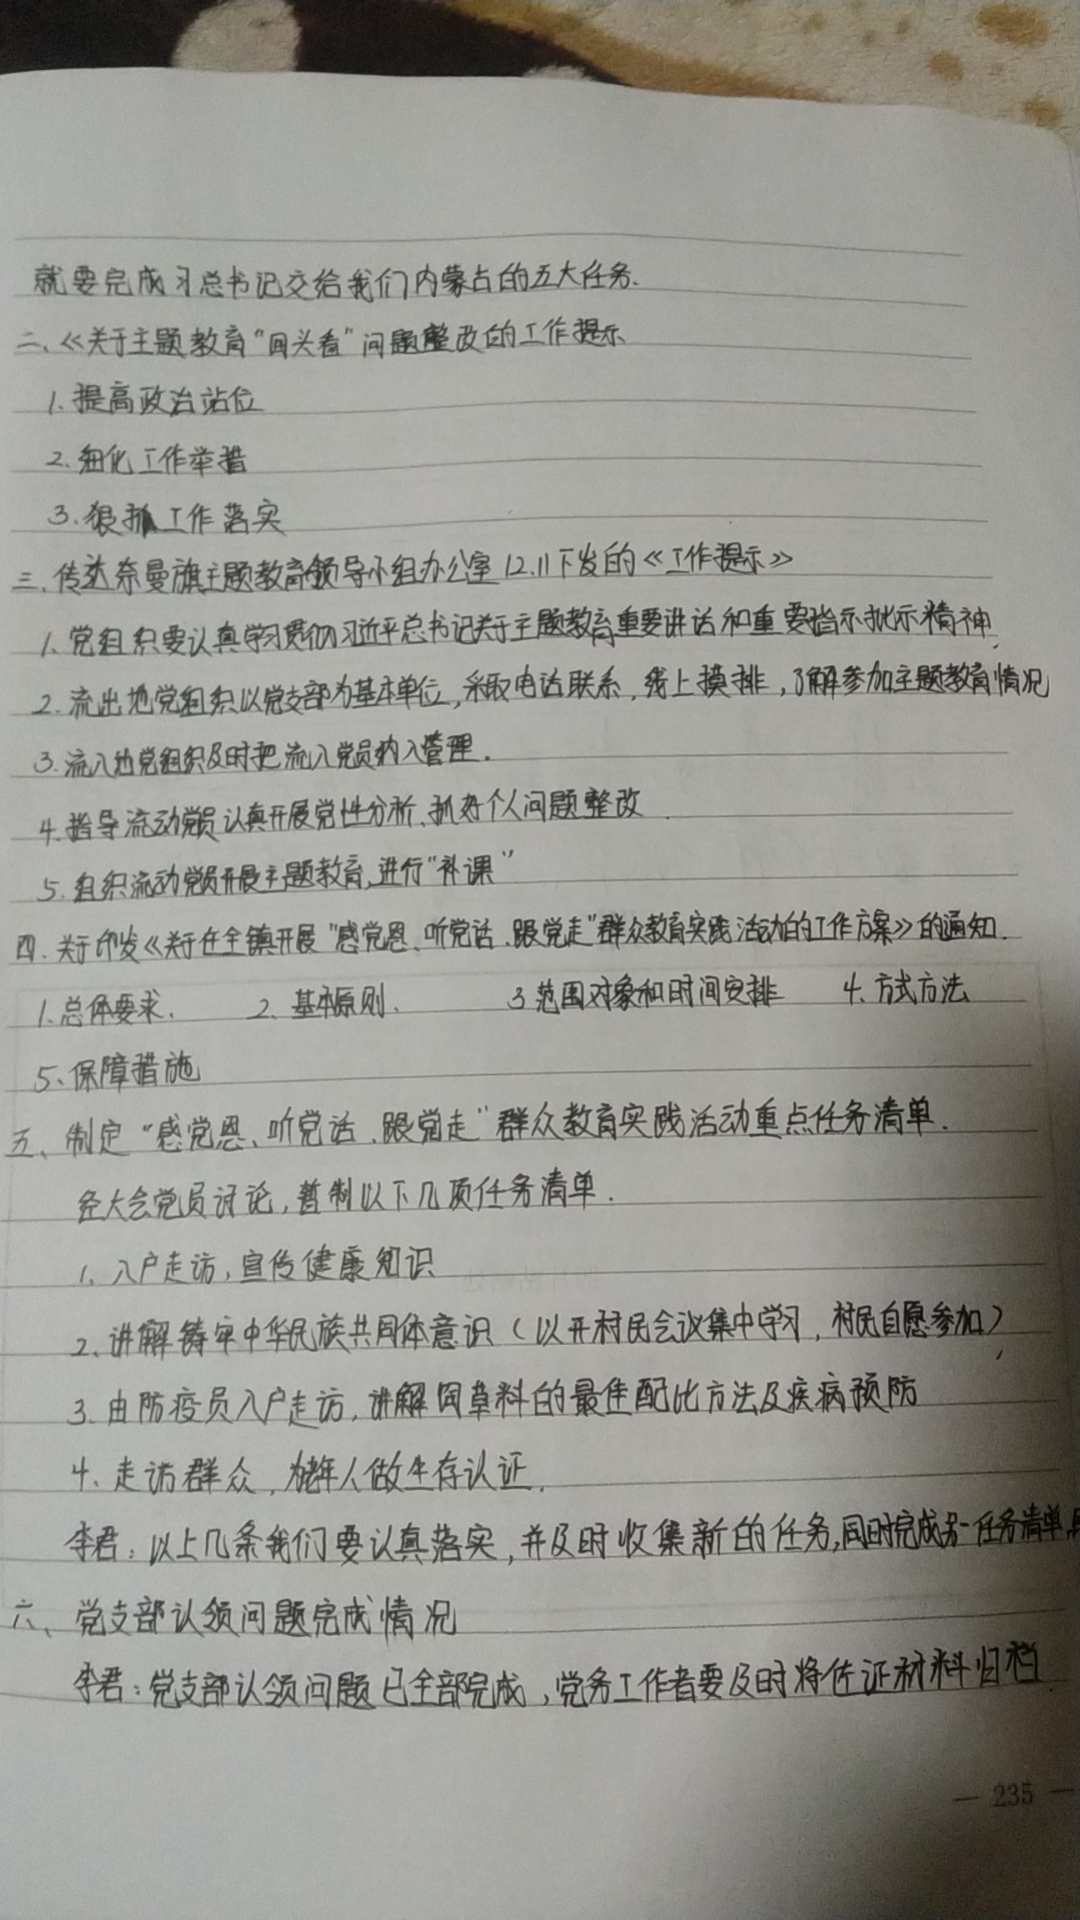 就要完成习总书记交给我们内蒙古的五大任务.
二、《关于主题教育“回头看”问题整改的工作提示
1.提高政治站位
2.细化工作举措
3.狠抓工作落实
三.传达奈曼旗主题教育领导小组办公室12.11下发的《工作提示》
1.党组织要认真学习贯彻习近平总书记关于主题教育重要讲话和重要指示批示精神.
2.流出地党组织以党支部为基本单位,采取电话联系,线上摸排,了解参加主题教育情况
3.流入地党组织及时把流入党员纳入管理.
4.指导流动党员认真开展党性分析、抓好个人问题整改.
5.组织流动党员开展主题教育,进行“补课”
四.关于印发《关于在全镇开展“感党恩、听党话、跟党走”群众教育实践活动的工作方案》的通知.
1.总体要求. 2.基本原则. 3范围对象和时间安排 4.方式方法
5、保障措施
五、制定“感党恩、听党话、跟党走”群众教育实践活动重点任务清单.
经大会党员讨论,暂制以下几项任务清单.
1、入户走访,宣传健康知识
2、讲解铸牢中华民族共同体意识(以开村民会议集中学习,村民自愿参加)
3.由防疫员入户走访,讲解饲草料的最佳配比方法及疾病预防
4、走访群众,为老年人做生存认证.
李君:以上几条我们要认真落实,并及时收集新的任务,同时完成另一任务清单
六、党支部认领问题完成情况
李君:党支部认领问题已全部完成,党务工作者要及时将佐证材料归档.
— 235 —